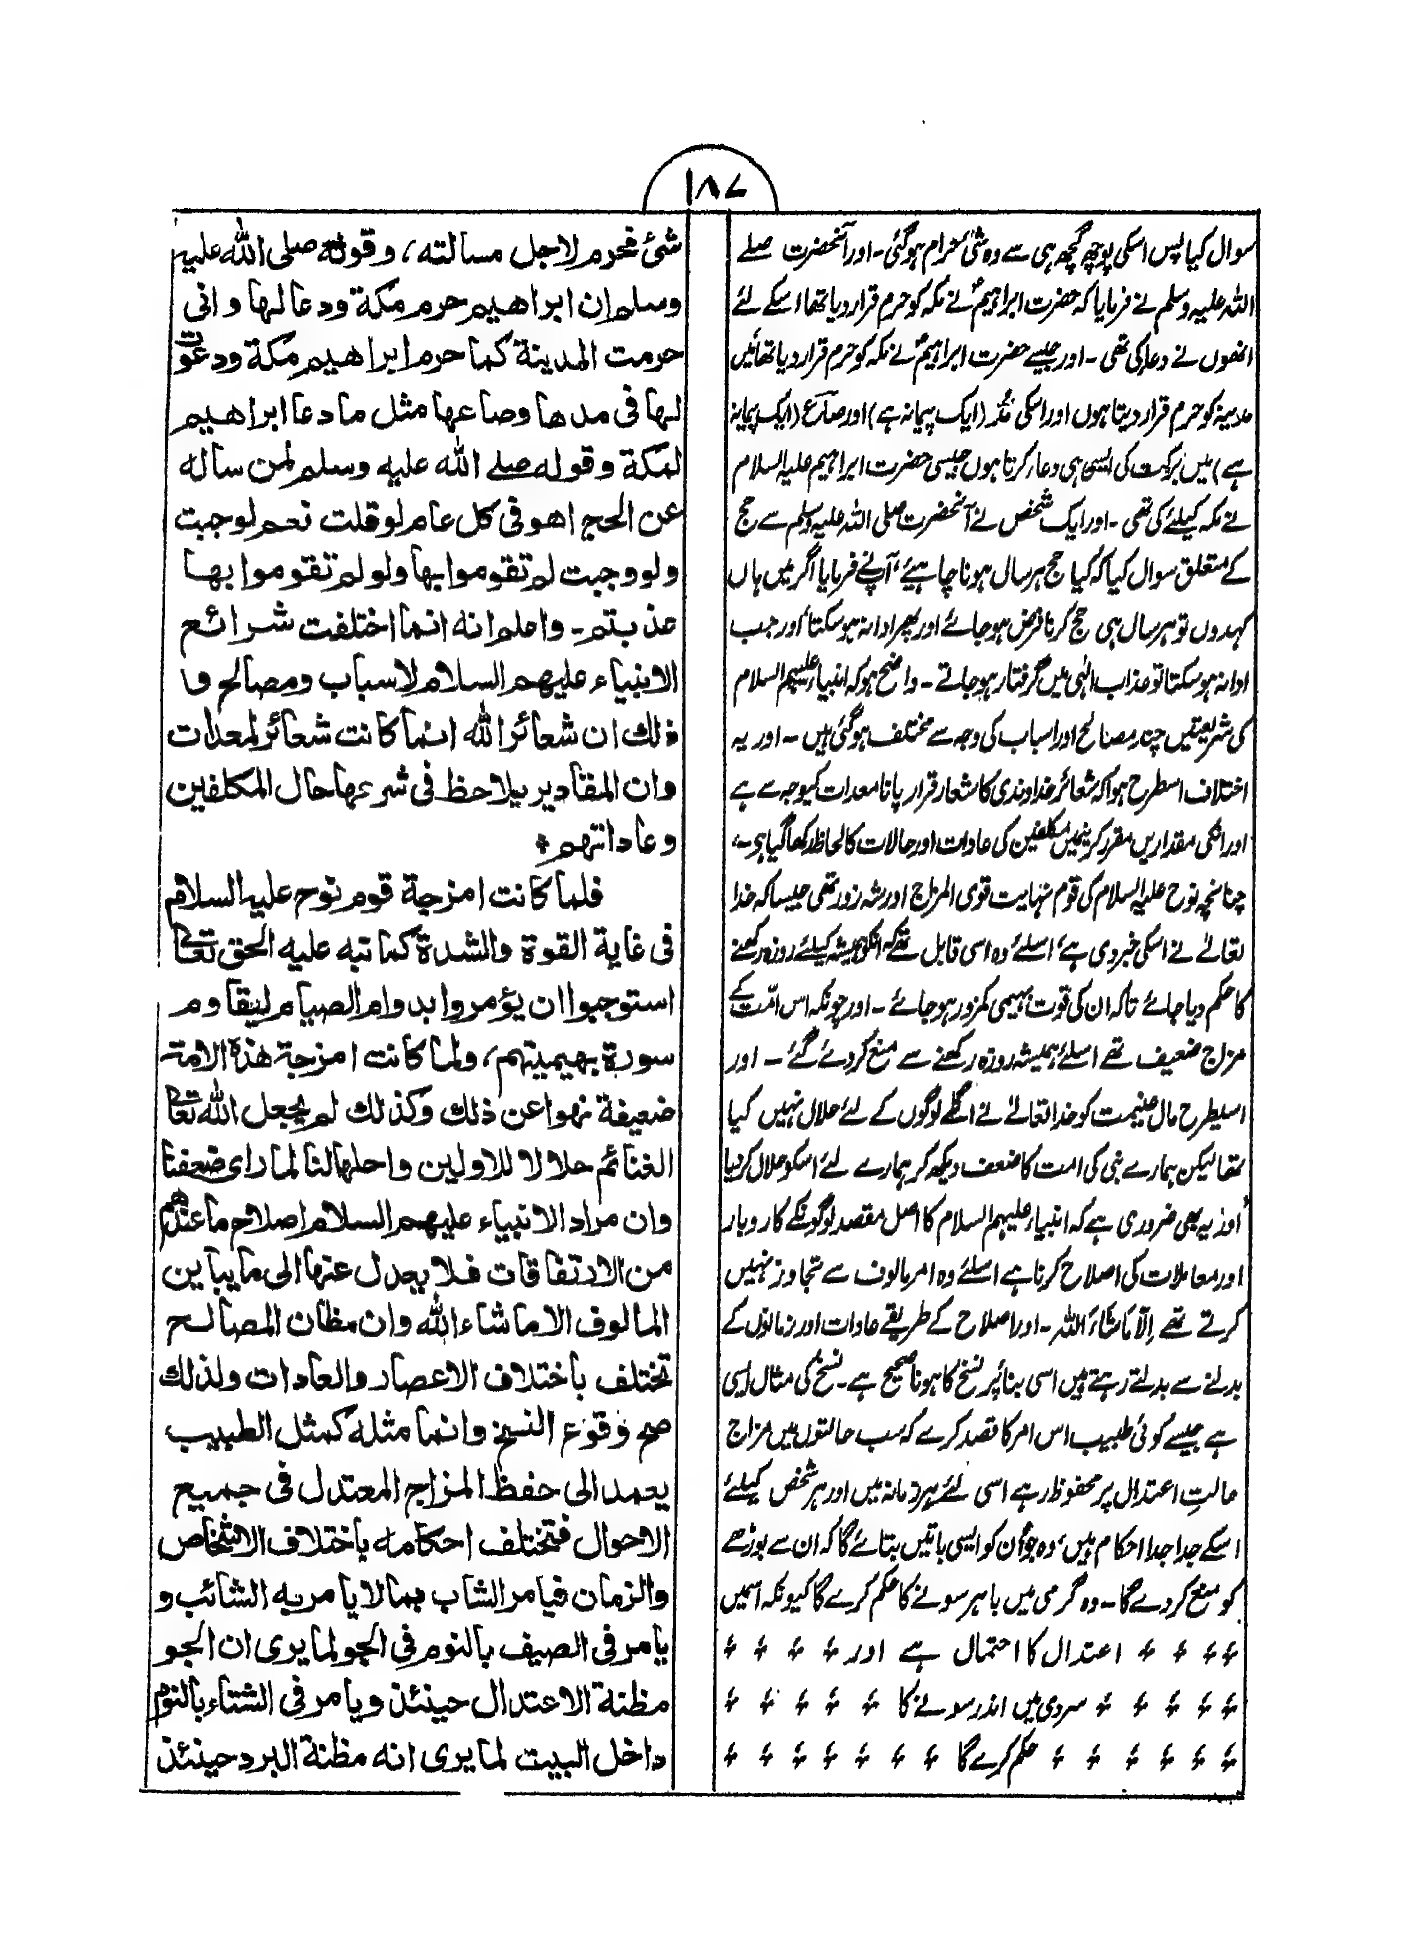 ۱۸۷
سوال کیا پس اسکی پوچھ گچھ ہی سے وہ شئ حرام ہوگئی۔ اور آنحضرت صلے
اللہ علیہ وسلم نے فرمایا کہ حضرت ابراہیمؑ نے مکہ کو حرم قرار دیا تھا اسکے لئے
انھوں نے دعا کی تھی۔ اور جیسے حضرت ابراہیمؑ نے مکہ کو حرم قرار دیا تھا میں
مدینہ کو حرم قرار دیتا ہوں اور اسکی مُد (ایک پیمانہ ہے) اور صاع (ایک پیمانہ
ہے) میں برکت کی ایسی ہی دعا کرتا ہوں جیسی حضرت ابراہیم علیہ السلام
نے مکہ کیلئے کی تھی۔ اور ایک شخص نے آنحضرت صلی اللہ علیہ وسلم سے حج
کے متعلق سوال کیا کہ کیا حج ہر سال ہونا چاہئے، آپنے فرمایا اگر میں ہاں
کہدوں تو ہر سال ہی حج کرنا فرض ہو جائے اور پھر ادا نہ ہو سکتا، اور جب
ادا نہ ہو سکتا تو عذاب الٰہی میں گرفتار ہو جاتے۔ واضح ہو کہ انبیاء علیہم السلام
کی شریعتیں چند مصالح اور اسباب کی وجہ سے مختلف ہوگئی ہیں۔ اور یہ
اختلاف اسطرح ہوا کہ شعائر خداوندی کا شعار قرار پانا معدات کیوجہ سے ہے
اور انکی مقداریں مقرر کرنیمیں مکلفین کی عادات اور حالات کا لحاظ رکھا گیا ہی۔
چنانچہ نوح علیہ السلام کی قوم نہایت قوی المزاج اور شہ زور تھی جیسا کہ خدا
تعالےٰ نے اسکی خبر دی ہے، اسلئے وہ اسی قابل تھے کہ انکو ہمیشہ کیلئے روزہ رکھنے
کا حکم دیا جائے تاکہ ان کی قوت بہیمی کمزور ہو جائے۔ اور چونکہ اس امّت کے
مزاج ضعیف تھے اسلئے ہمیشہ روزہ رکھنے سے منع کر دئے گئے۔ اور
اسیطرح مال غنیمت کو خدا تعالےٰ نے اگلے لوگوں کے لئے حلال نہیں کیا
تھا لیکن ہمارے نبی کی امت کا ضعف دیکھ کر ہمارے لئے اسکو حلال کر دیا
اور یہ بھی ضروری ہے کہ انبیاء علیہم السلام کا اصل مقصد لوگونکے کاروبار
اور معاملات کی اصلاح کرنا ہے اسلئے وہ امر مالوف سے تجاوز نہیں
کرتے تھے اِلّا مَا شَاءَ اللہ۔ اور اصلاح کے طریقے عادات اور زمانوں کے
بدلنے سے بدلتے رہتے ہیں اسی بنا پر نسخ کا ہونا صحیح ہے۔ نسخ کی مثال ایسی
ہے جیسے کوئی طبیب اس امر کا قصد کرے کہ سب حالتوں میں مزاج
حالتِ اعتدال پر محفوظ رہے اسی لئے ہر زمانہ میں اور ہر شخص کیلئے
اسکے جدا جدا احکام ہیں، وہ جوان کو ایسی باتیں بتائے گا کہ ان سے بوڑھے
کو منع کر دے گا۔ وہ گرمی میں باہر سونے کا حکم کرے گا کیونکہ اسمیں
اعتدال کا احتمال ہے اور
سردی میں اندر سونے کا
حکم کرے گا
شئ فحرم لاجل مسالته، وقوله صلى الله عليه
وسلم ان ابراهيم حرم مكة ودعا لها وانى
حرمت المدينة كما حرم ابراهيم مكة ودعوت
لها فى مدها وصاعها مثل ما دعا ابراهيم
لمكة وقوله صلے الله عليه وسلم لمن ساله
عن الحج اهو فى كل عام لو قلت نعم لوجبت
ولو وجبت لم تقوموا بها ولو لم تقوموا بها
عذبتم۔ واعلم انه انما اختلفت شرائع
الانبياء عليهم السلام لاسباب ومصالح و
ذلك ان شعائر الله انما كانت شعائر لمعدات
وان المقادير يلاحظ فى شرعها حال المكلفين
وعاداتهم
فلما كانت امزجة قوم نوح عليه السلام
فى غاية القوة والشدة كما نبه عليه الحق تعالى
استوجبوا ان يؤمروا بدوام الصيام ليقاوم
سورة بهيميتهم، ولما كانت امزجة هذه الامة
ضعيفة نهوا عن ذلك وكذلك لم يجعل الله تعالى
الغنائم حلالا للاولين واحلها لنا لما راى ضعفنا
وان مراد الانبياء عليهم السلام اصلاح ما عندهم
من الارتفاقات فلا يعدل عنها الى ما يباين
المالوف الا ما شاء الله وان مظان المصالح
تختلف باختلاف الاعصار والعادات ولذلك
صح وقوع النسخ وانما مثله كمثل الطبيب
يعمد الى حفظ المزاج المعتدل فى جميع
الاحوال فتختلف احكامه باختلاف الاشخاص
والزمان فيامر الشاب بما لا يامر به الشائب و
يامر فى الصيف بالنوم فى الجو لما يرى ان الجو
مظنة الاعتدال حينئذ ويامر فى الشتاء بالنوم
داخل البيت لما يرى انه مظنة البرد حينئذ